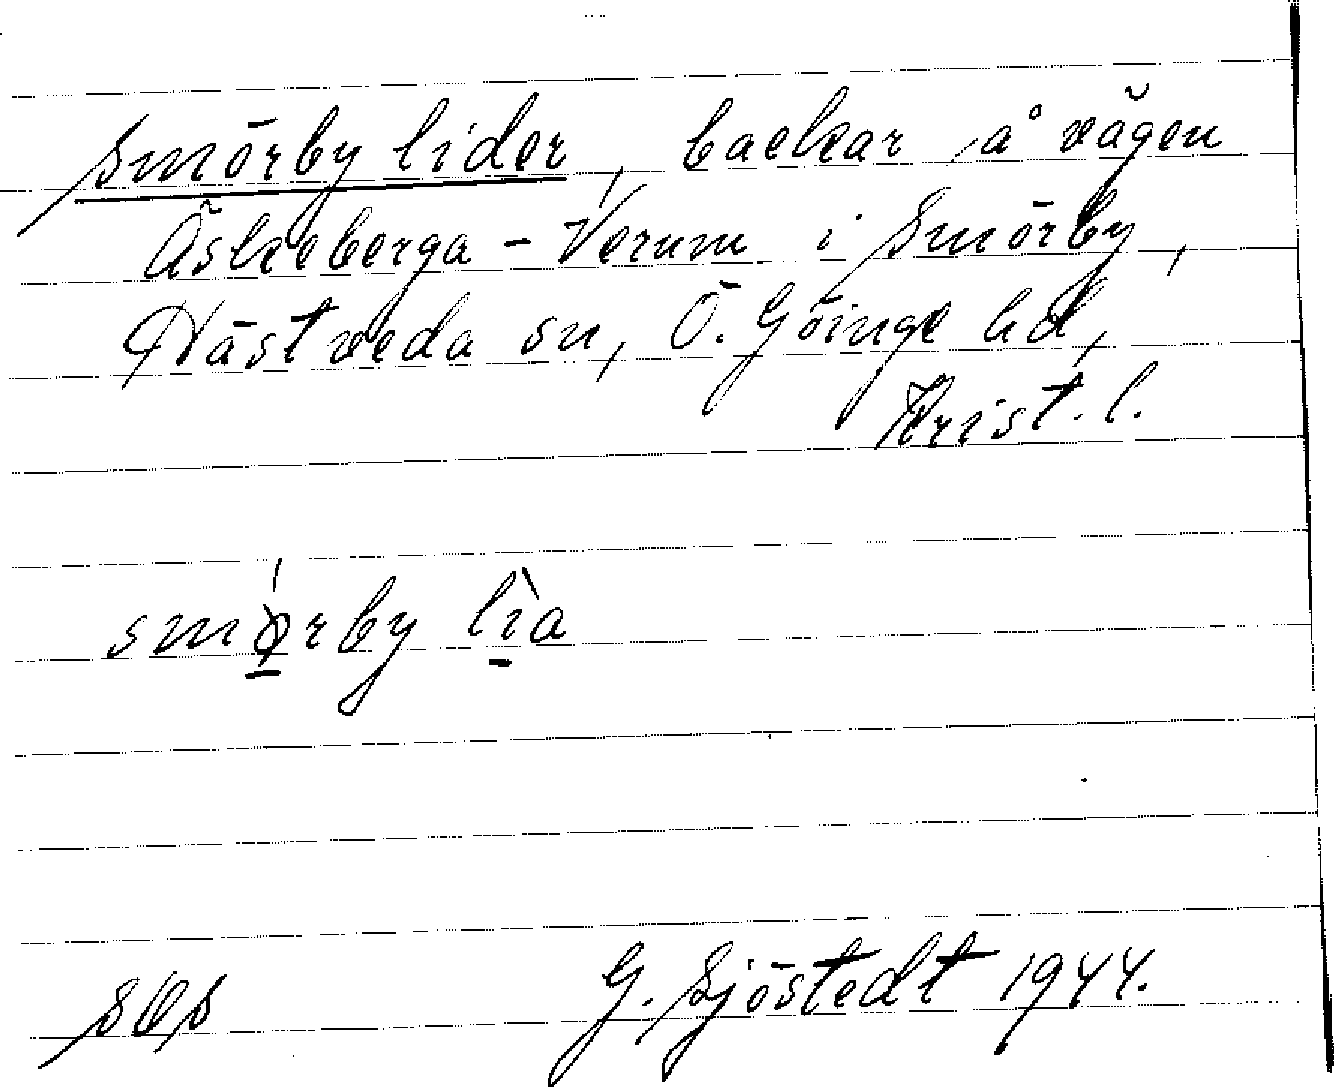 Smörby lider, backar å vägen
Äskeberga - Verum i Smörby,
Hästveda sn, Ö. Göinge hd,
Krist. l.
smørby lìa
G. Sjöstedt 1944.